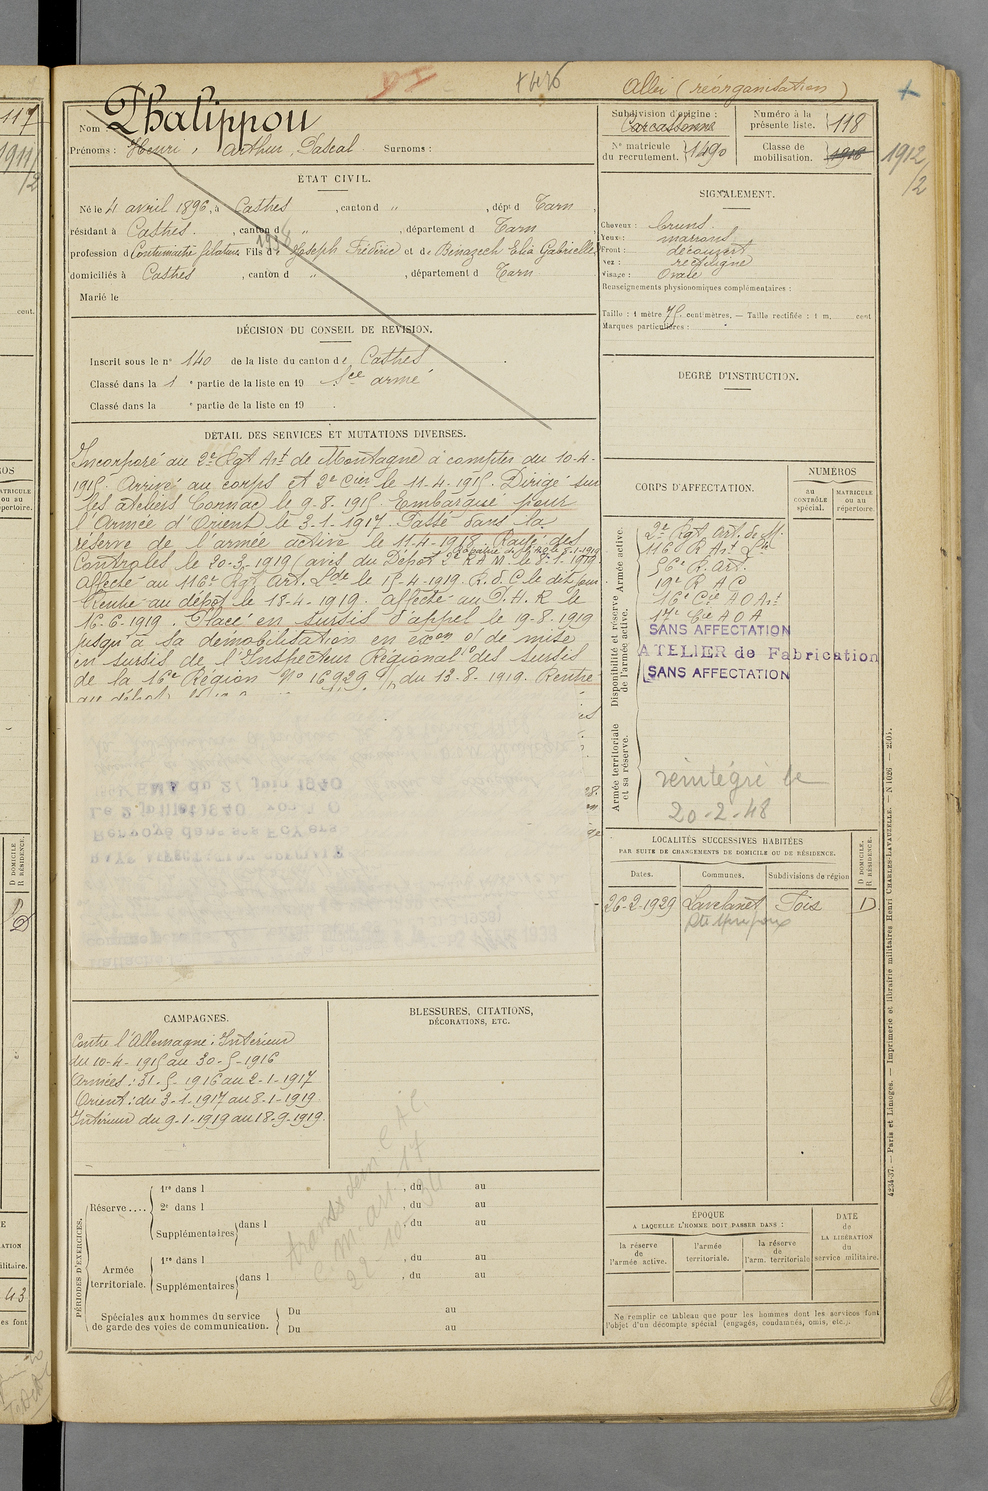 +426
Allei (réorganisation)
Nom : Phalippou
Prénoms : Henri, Arthur, Pascal Surnoms :
ÉTAT CIVIL.
Né le 4 avril 1896, à Castres, canton d " , dép^t d Tarn,
résidant à Castres, canton d " , département d Tarn
profession d Fils de Joseph Frédéric et de Bénazech Elia Gabrielle
domiciliés à Castres, canton d " , département d Tarn
Marié le
DÉCISION DU CONSEIL DE REVISION.
Inscrit sous le n° 140 de la liste du canton de Castres
Classé dans la 1 e partie de la liste en 19 Sce armé
Classé dans la e partie de la liste en 19 .
DETAIL DES SERVICES ET MUTATIONS DIVERSES.
Incorporé au 2e Rgt Art de Montagne à compter du 10-4-
1915. Arrivé au corps et 2e cier le 11-4-1915. Dirigé sur
les ateliers Connac le 9-8-1915. Embarqué pour
l'Armée d'Orient le 3-1-1917. Passé dans la
réserve de l'armée active le 11-4-1918. Rayé des
Contrôles le 20-3-1919 (avis du Dépôt 2e R A M. le 8-1-1919
Affecté au 116e Rgt Art. Lde le 15-4-1919. R. d. C le dit jour
Rentré au dépôt le 18-4-1919. Affecté au P. H. R le
16-6-1919. Placé en sursis d'appel le 19-8-1919
jusqu'à sa démobilisation en exon of de mise
en sursis de l'Inspecteur Régional des sursis
de la 16e Région No 16929 du 13-8-1919. Rentré
au dépôt
CAMPAGNES.
Contre l'Allemagne : Intérieur
du 10-4-1915 au 30-5-1916
Armées : 31-5-1916 au 2-1-1917
Orient : du 3-1-1917 au 8-1-1919
Intérieur du 9-1-1919 au 18-9-1919.
BLESSURES, CITATIONS,
DÉCORATIONS, ETC.
PÉRIODES D'EXERCICES.
Réserve....
1re dans l , du au
2e dans l , du au
Supplémentaires dans l , du au
Armée territoriale.
1re dans l , du au
Supplémentaires dans l , du au
Spéciales aux hommes du service
de garde des voies de communication.
Du au
Du au
Subdivision d'origine :
Carcassonne
Numéro à la
présente liste. 118
N° matricule
du recrutement. 1490
Classe de
mobilisation. 1916
1912/2
SIGNALEMENT.
Cheveux : bruns
Yeux : marrons
Front : découvert
Nez : rectiligne
Visage : Ovale
Renseignements physionomiques complémentaires :
Taille : 1 mètre 75 centimètres. — Taille rectifiée : 1 m. cent
Marques particulières :
DEGRÉ D'INSTRUCTION.
CORPS D'AFFECTATION.
NUMEROS
au
CONTRÔLE
spécial.
MATRICULE
ou au
répertoire
Armée active.
Disponibilité et réserve
de l'armée active.
Armée territoriale
et sa réserve.
2e Rgt Art. de M.
116e R Art Lde
56e R. Art.
19e R A C
16e Cie A O Art
17e Cie A O A
SANS AFFECTATION
ATELIER de Fabrication
SANS AFFECTATION
réintégré le
20-2-48
LOCALITÉS SUCCESSIVES HABITÉES
PAR SUITE DE CHANGEMENTS DE DOMICILE OU DE RÉSIDENCE.
D DOMICILE.
R RÉSIDENCE.
Dates. Communes. Subdivisions de région
26-2-1929 Lavelanet Foix D
ÉPOQUE
A LAQUELLE L'HOMME DOIT PASSER DANS :
la réserve
de
l'armée active.
l'armée
territoriale.
la réserve
de
l'arm. territoriale
DATE
de
LA LIBÉRATION
du
service militaire.
Ne remplir ce tableau que pour les hommes dont les services font
l'objet d'un décompte spécial (engagés, condamnés, omis, etc.).
4234-37. — Paris et Limoges. — Imprimerie et librairie militaires Henri CHARLES-LAVAUZELLE. — N 1026 — 2501.